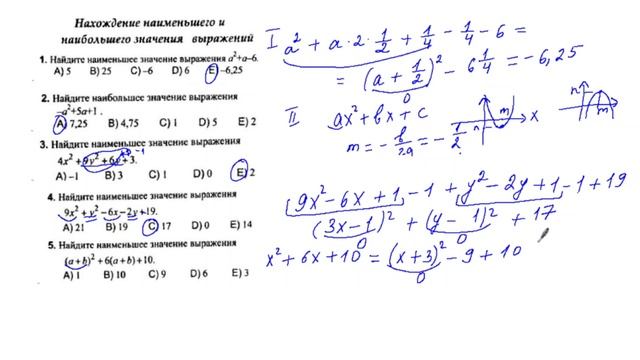 Нахождение наименьшего и
наибольшего значения выражений
1. Найдите наименьшее значение выражения a²+a–6.
A) 5 B) 25 C) –6 D) 6 E) –6,25
2. Найдите наибольшее значение выражения
–a²+5a+1.
A) 7,25 B) 4,75 C) 1 D) 5 E) 2
3. Найдите наименьшее значение выражения
4x²+9y²+6y+3. –1
A) –1 B) 3 C) 1 D) 0 E) 2
4. Найдите наименьшее значение выражения
9x²+y²–6x–2y+19.
A) 21 B) 19 C) 17 D) 0 E) 14
5. Найдите наименьшее значение выражения
(a+b)²+6(a+b)+10.
A) 1 B) 10 C) 9 D) 6 E) 3
I a² + a·2·1/2 + 1/4 – 1/4 – 6 =
= (a + 1/2)² – 6 1/4 = –6,25
0
II ax² + bx + c
m = – b/2a = – 1/2
n m x
n m
9x² – 6x + 1 – 1 + y² – 2y + 1 – 1 + 19
(3x – 1)² + (y – 1)² + 17
0 0
x² + 6x + 10 = (x + 3)² – 9 + 10
0